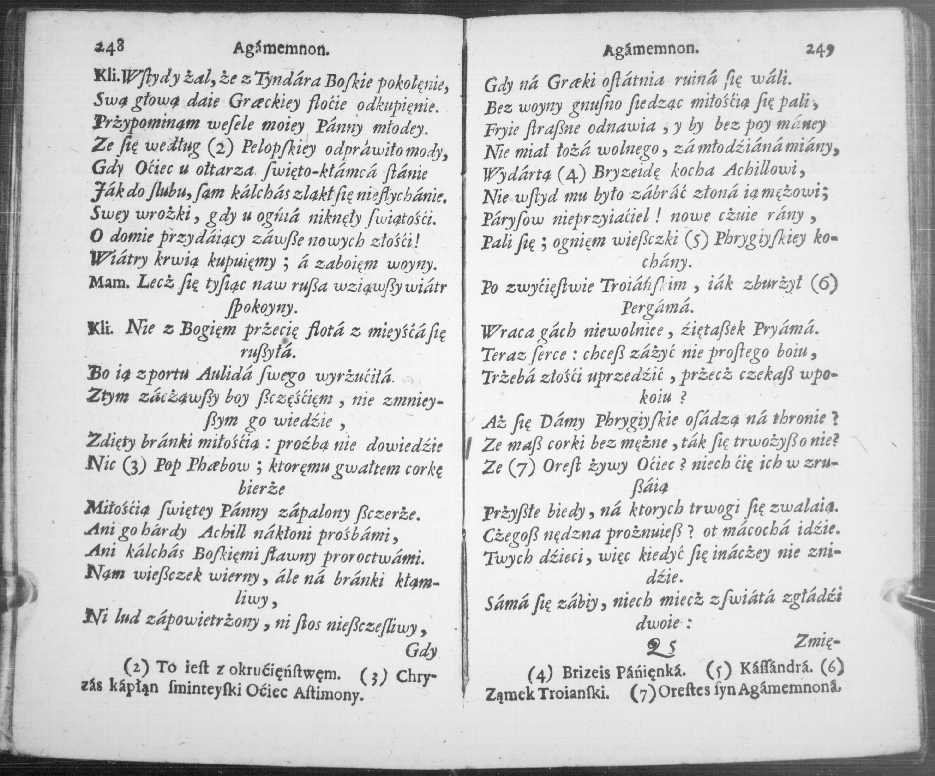 248 Agámemnon.
Kli. Wſtydy żal, że z Tyndára Boſkie pokolęnie,
Swą głową daie Græckiey flocie odkupięnie.
Przypominam weſele moiey Pánny młodey.
Ze ſię według (2) Pelopſkiey odpráwiło mody,
Gdy Oćiec u ołtarza święto-kłámcá ſtánie
Ják do ſlubu, ſąm kálchás zląkł ſię nieſłychánie.
Swey wrożki, gdy u ogniá niknęły ſwiątośći.
O domie przydáiący záwſze nowych złośći!
Wiátry krwią kupuięmy; á zaboięm woyny.
Mam. Lecż ſię tyſiąc naw ruſza wziąwſzy wiátr
ſpokoyny.
Kli. Nie z Bogięm przećię flotá z mieyśćá ſię
ruſzyłá.
Bo ią z portu Aulidá ſwego wyrżućiłá.
Ztym zácżąwſzy boy ſzcżęśćięm, nie zmniey-
ſzym go wiedźie,
Zdięty bránki miłośćią: proźbą nie dowiedźie
Nic (3) Pop Phæbow; ktoręmu gwałtem corkę
bierże
Miłośćią ſwiętey Pánny zápalony ſzcżerże.
Ani go hárdy Achill nákłoni prośbámi,
Ani kálchás Boſkięmi ſławny proroctwámi.
Nąm wieſzczek wierny, ále ná bránki kłąm-
liwy,
Ni lud zápowietrżony, ni ſtos nieſzcżeſliwy,
Gdy
(2) To ieſt z okrućięńſtwęm. (3) Chry-
zás kápłąn ſminteyſki Oćiec Aſtimony.
Agámemnon. 249
Gdy ná Græki oſtátnia ruiná ſię wáli.
Bez woyny gnuſno ſiedząc miłośćią ſię pali,
Fryie ſtraſzne odnawia, y by bez poy máney
Nie miał łożá wolnego, zá młodźiáná miány,
Wydártą (4) Bryzeidę kocha Achillowi,
Nie wſtyd mu było zábráć złoná ią mężowi;
Páryſow nieprzyiaćiel! nowe cżuie rány,
Pali ſię; ognięm wieſzczki (5) Phrygiyſkiey ko-
chány.
Po zwyćięſtwie Troiáńſkim, iák zburżył (6)
Pergámá.
Wraca gách niewolnice, źiętaſzek Pryámá.
Teraz ſerce: chceſz záżyć nie proſtego boiu,
Trżebá złośći uprzedźić, przecż czekaſz wpo-
koiu?
Aż ſię Dámy Phrygiyſkie oſádzą ná thronie?
Ze maſz corki bez mężne, ták ſię trwożyſz o nie?
Ze (7) Oreſt żywy Oćiec? niech ćię ich w zru-
ſzáią
Przyſzłe biedy, ná ktorych trwogi ſię zwalaią.
Cżegoſz nędzna prożnuieſz? ot mácochá idźie.
Twych dźieci, więc kiedyć ſię inácżey nie zni-
dźie.
Sámá ſię zábiy, niech miecż z ſwiátá zgłádźi
dwoie:
Q 5 Zmię-
(4) Brizeis Páńięnká. (5) Káſſándrá. (6)
Ząmek Troianſki. (7) Oreſtes ſyn Agámemnoná.